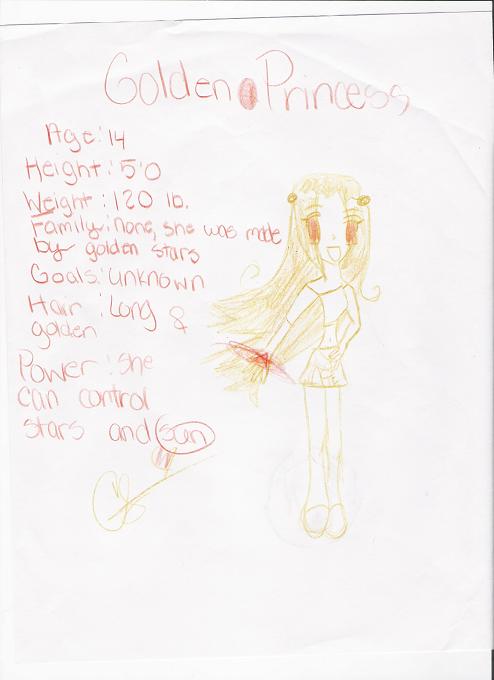 Golden Princess
Age: 14
Height: 5'0
Weight: 120 lb.
Family: none, she was made
by golden stars
Goals: unknown
Hair: Long &
golden
Power: she
can control
stars and sun